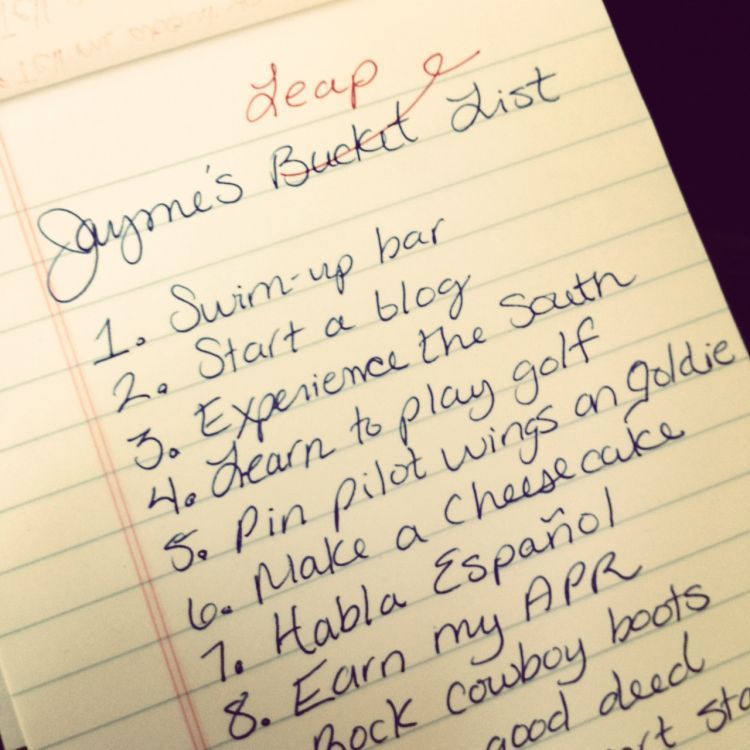 Leap
Jayme's Bucket List
1. Swim-up bar
2. Start a blog
3. Experience the South
4. Learn to play golf
5. Pin pilot wings on Goldie
6. Make a cheesecake
7. Habla Español
8. Earn my APR
Rock cowboy boots
good deed